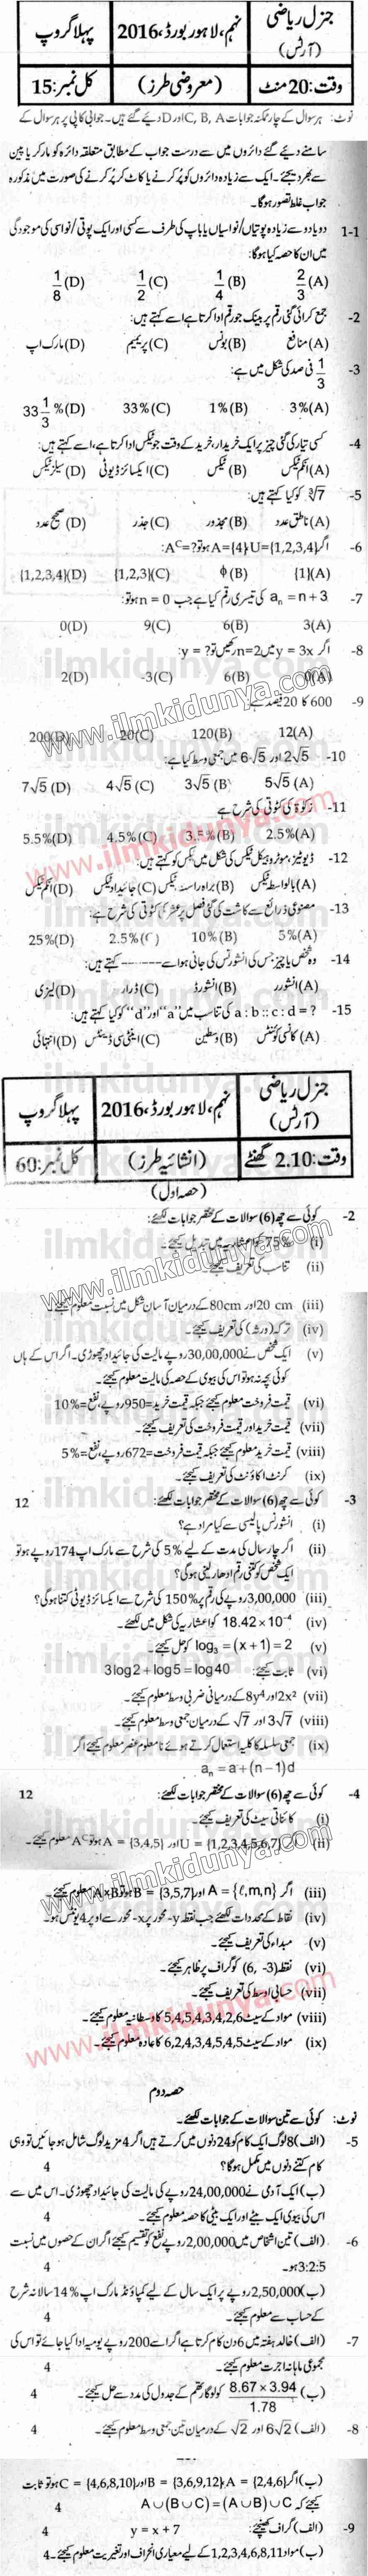 جنرل ریاضی (آرٹس)
نہم، لاہور بورڈ، 2016
پہلا گروپ
وقت: 20 منٹ
(معروضی طرز)
کل نمبر: 15
نوٹ: ہر سوال کے چار ممکنہ جوابات A, B, C اور D دیئے گئے ہیں۔ جوابی کاپی پر ہر سوال کے
سامنے دیئے گئے دائروں میں سے درست جواب کے مطابق متعلقہ دائرہ کو مارکر یا پین
سے بھر دیجئے۔ ایک سے زیادہ دائروں کو پُر کرنے یا کاٹ کر پُر کرنے کی صورت میں مذکورہ
جواب غلط تصور ہوگا۔
1-1 دو یا دو سے زیادہ پوتیاں/نواسیاں یا باپ کی طرف سے کسی اور ایک پوتی/نواسی کی موجودگی
میں ان کا حصہ کیا ہوگا:
(A) 2/3 (B) 1/4 (C) 1/2 (D) 1/8
-2 جمع کرائی گئی رقم پر بینک جو رقم ادا کرتا ہے اسے کہتے ہیں:
(A) منافع (B) بونس (C) پریمیم (D) مارک اپ
-3 1/3 فی صد کی شکل میں ہے:
(A) 3% (B) 1% (C) 33% (D) 33 1/3 %
-4 کسی تیار کی گئی چیز پر ایک خریدار، خرید کے وقت جو ٹیکس ادا کرتا ہے، اسے کہتے ہیں:
(A) انکم ٹیکس (B) ٹیکس (C) ایکسائز ڈیوٹی (D) سیلز ٹیکس
-5 ∛7 کو کیا کہتے ہیں:
(A) ناطق عدد (B) مجذور (C) جذر (D) صحیح عدد
-6 اگر U={1,2,3,4} A={4} ہو تو Aᶜ=?:
(A) {1} (B) ϕ (C) {1,2,3} (D) {1,2,3,4}
-7 aₙ = n+3 کی تیسری رقم کیا ہے جب n = 0 ہو تو:
(A) 3 (B) 6 (C) 9 (D) 0
-8 اگر y = 3x میں n=2 رکھیں تو y = ?:
(A) 0 (B) 6 (C) -3 (D) 2
-9 600 کا 20 فیصد ہے:
(A) 12 (B) 120 (C) 20 (D) 200
-10 2√5 اور 6√5 میں جمعی وسط کیا ہے:
(A) 5√5 (B) 3√5 (C) 4√5 (D) 7√5
-11 زکوٰۃ کی کٹوتی کی شرح ہے
(A) 2.5% (B) 3.5% (C) 4.5% (D) 5.5%
-12 ڈیوٹیز، موٹر وہیکل ٹیکس کی شکل میں ٹیکس کو کہتے ہیں:
(A) بالواسطہ ٹیکس (B) براہ راست ٹیکس (C) جائیداد ٹیکس (D) انکم ٹیکس
-13 مصنوعی ذرائع سے کاشت کی گئی فصل پر عشر کی کٹوتی کی شرح ہے:
(A) 5% (B) 10% (C) 2.5% (D) 25%
-14 وہ شخص یا چیز جس کی انشورنس کی جاتی ہو اسے ------ کہتے ہیں:
(A) انشورر (B) انشورڈ (C) ڈرار (D) لیزی
-15 a : b :: c : d = ? کی تناسب میں "a" اور "d" کو کیا کہتے ہیں:
(A) کانسی کوئنٹس (B) وسطین (C) اینٹی سی ڈینٹس (D) انتہائی
جنرل ریاضی (آرٹس)
نہم، لاہور بورڈ، 2016
پہلا گروپ
وقت: 2.10 گھنٹے
(انشائیہ طرز)
کل نمبر: 60
(حصہ اول)
-2 کوئی سے چھ (6) سوالات کے مختصر جوابات لکھئے:
(i) 75% کو اعشاریہ میں تبدیل کیجئے۔
(ii) تناسب کی تعریف کیجئے۔
(iii) 20 cm اور 80cm کے درمیان آسان شکل میں نسبت معلوم کیجئے۔
(iv) ترکہ (ورثہ) کی تعریف کیجئے۔
(v) ایک شخص نے 30,00,000 روپے مالیت کی جائیداد چھوڑی۔ اگر اس کے ہاں
کوئی بچہ نہ ہو تو اس کی بیوی کے حصہ کی مالیت معلوم کیجئے۔
(vi) قیمت فروخت معلوم کیجئے جبکہ قیمت خرید=950 روپے، نفع=10%
(vii) قیمت خرید اور قیمت فروخت کی تعریف کیجئے۔
(viii) قیمت خرید معلوم کیجئے جبکہ قیمت فروخت=672 روپے، نفع=5%
(ix) کرنٹ اکاؤنٹ کی تعریف کیجئے۔
-3 کوئی سے چھ (6) سوالات کے مختصر جوابات لکھئے: 12
(i) انشورنس پالیسی سے کیا مراد ہے؟
(ii) اگر چار سال کی مدت کے لیے 5% کی شرح سے مارک اپ 174 روپے ہو تو
ایک شخص کو کتنی رقم ادھار لینی ہوگی؟
(iii) 3,00,000 روپے کی رقم پر 150% کی شرح سے ایکسائز ڈیوٹی کتنا ہوگی؟
(iv) 18.42×10⁻⁴ کو اعشاریہ کی شکل میں لکھئے۔
(v) log₃ = (x+1) = 2 کو حل کیجئے۔
(vi) ثابت کیجئے: 3log2+log5=log40
(vii) 2x² اور 8y⁴ کے درمیانی ضربی وسط معلوم کیجئے۔
(viii) 3√7 اور √7 کے درمیان جمعی وسط معلوم کیجئے۔
(ix) جمعی سلسلہ کا کلیہ استعمال کرتے ہوئے نامعلوم عنصر معلوم کیجئے اگر
aₙ = a+(n−1)d
-4 کوئی سے چھ (6) سوالات کے مختصر جوابات لکھئے: 12
(i) کائناتی سیٹ کی تعریف کیجئے۔
(ii) U = {1,2,3,4,5,6,7} اور A = {3,4,5} ہو تو Aᶜ معلوم کیجئے۔
(iii) اگر A = {ℓ,m,n} اور B = {3,5,7} ہو تو A×B معلوم کیجئے۔
(iv) نقاط کے محددات لکھئے جب نقطہ y-محور پر x-محور سے اوپر 4 یونٹس ہو۔
(v) مبداء کی تعریف کیجئے۔
(vi) نقطہ (6, -3) کو گراف پر ظاہر کیجئے۔
(vii) حسابی اوسط کی تعریف کیجئے۔
(viii) مواد کے سیٹ 5,4,5,4,3,4,2,6 کا وسطانیہ معلوم کیجئے۔
(ix) مواد کے سیٹ 6,2,4,3,4,5,4,5 کا عادہ معلوم کیجئے۔
حصہ دوم
نوٹ: کوئی سے تین سوالات کے جوابات لکھئے۔
-5 (الف) 8 لوگ ایک کام کو 24 دنوں میں کرتے ہیں اگر 4 مزید لوگ شامل ہو جائیں تو وہی
کام کتنے دنوں میں مکمل ہوگا؟ 4
(ب) ایک آدمی نے 24,00,000 روپے کی مالیت کی جائیداد چھوڑی۔ اس میں سے
اس کی بیوی ایک بیٹے اور ایک بیٹی کا حصہ معلوم کیجئے۔ 4
-6 (الف) تین اشخاص میں 2,00,000 روپے نفع کو تقسیم کیجئے اگر ان کے حصوں میں نسبت
3:2:5 ہو۔ 4
(ب) 2,50,000 روپے پر ایک سال کے لیے کمپاؤنڈ مارک اپ 14% سالانہ شرح
کے حساب سے معلوم کیجئے۔ 4
-7 (الف) خالد ہفتہ میں 6 دن کام کرتا ہے اگر اسے 200 روپے یومیہ ادا کیا جائے تو اس کی
مجموعی ماہانہ اجرت معلوم کیجئے۔ 4
(ب) 8.67×3.94 / 1.78 کو لوگارتھم کے جدول کی مدد سے حل کیجئے۔ 4
-8 (الف) 6√2 اور √2 کے درمیان تین جمعی وسط معلوم کیجئے۔ 4
(ب) اگر A = {2,4,6}، B = {3,6,9,12} اور C = {4,6,8,10} ہو تو ثابت
کیجئے کہ A∪(B∪C) = (A∪B)∪C 4
-9 (الف) گراف کھینچئے: y = x+7 4
(ب) مواد 1,2,3,4,6,8,11 کے لیے معیاری انحراف اور تغیریت معلوم کیجئے۔ 4
www.ilmkidunya.com